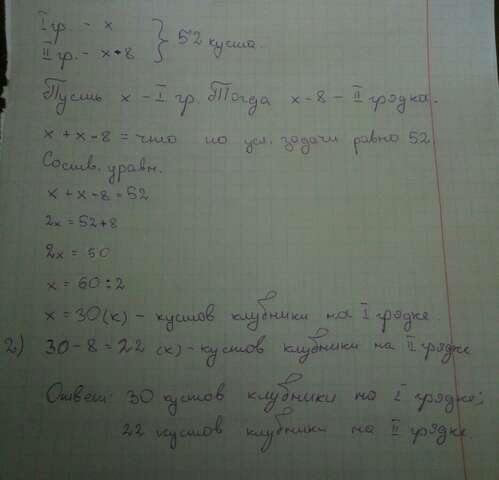 I гр. - x
II гр. - x-8 } 52 куста.
Пусть x - I гр. Тогда x - 8 - II грядка.
x + x - 8 = что по усл. задачи равно 52.
Состав. уравн.
x + x - 8 = 52
2x = 52+8
2x = 60
x = 60 : 2
x = 30 (к) - кустов клубники на I грядке.
2) 30 - 8 = 22 (к) - кустов клубники на II грядке
Ответ: 30 кустов клубники на I грядке;
22 кустов клубники на II грядке